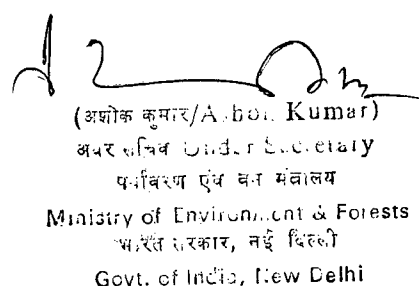 (अशोक कुमार/Ashok Kumar)
अवर सचिव Under Secretary
पर्यावरण एवं वन मंत्रालय
Ministry of Environment & Forests
भारत सरकार, नई दिल्ली
Govt. of India, New Delhi